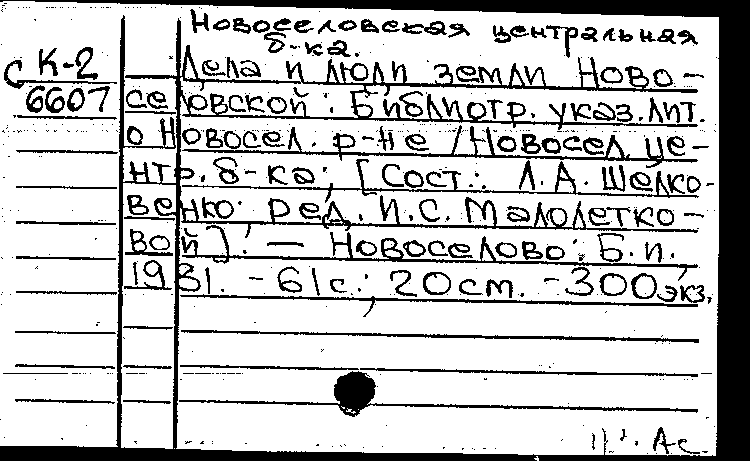 Новоселовская центральная
б-ка.
С К-2
6607
Дела и люди земли Ново-
селовской: Библиогр. указ. лит.
о Новосел. р-не / Новосел. це-
нтр. б-ка; [Сост.: Л.А. Шелко-
венко: ред. И.С. Малолетко-
вой]. — Новоселово: Б.и.,
1981. - 61с.; 20см. - 300экз.